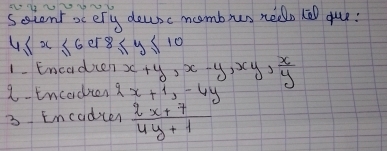 Soient x et y deux nombres réels tel que :
4 ⩽ x ⩽ 6 et 8 ⩽ y ⩽ 10
1 - Encadrer x + y, x - y, xy, x/y
2 - Encadrer 2x + 1, - 4y
3 - Encadrer (2x + 7)/(4y + 1)